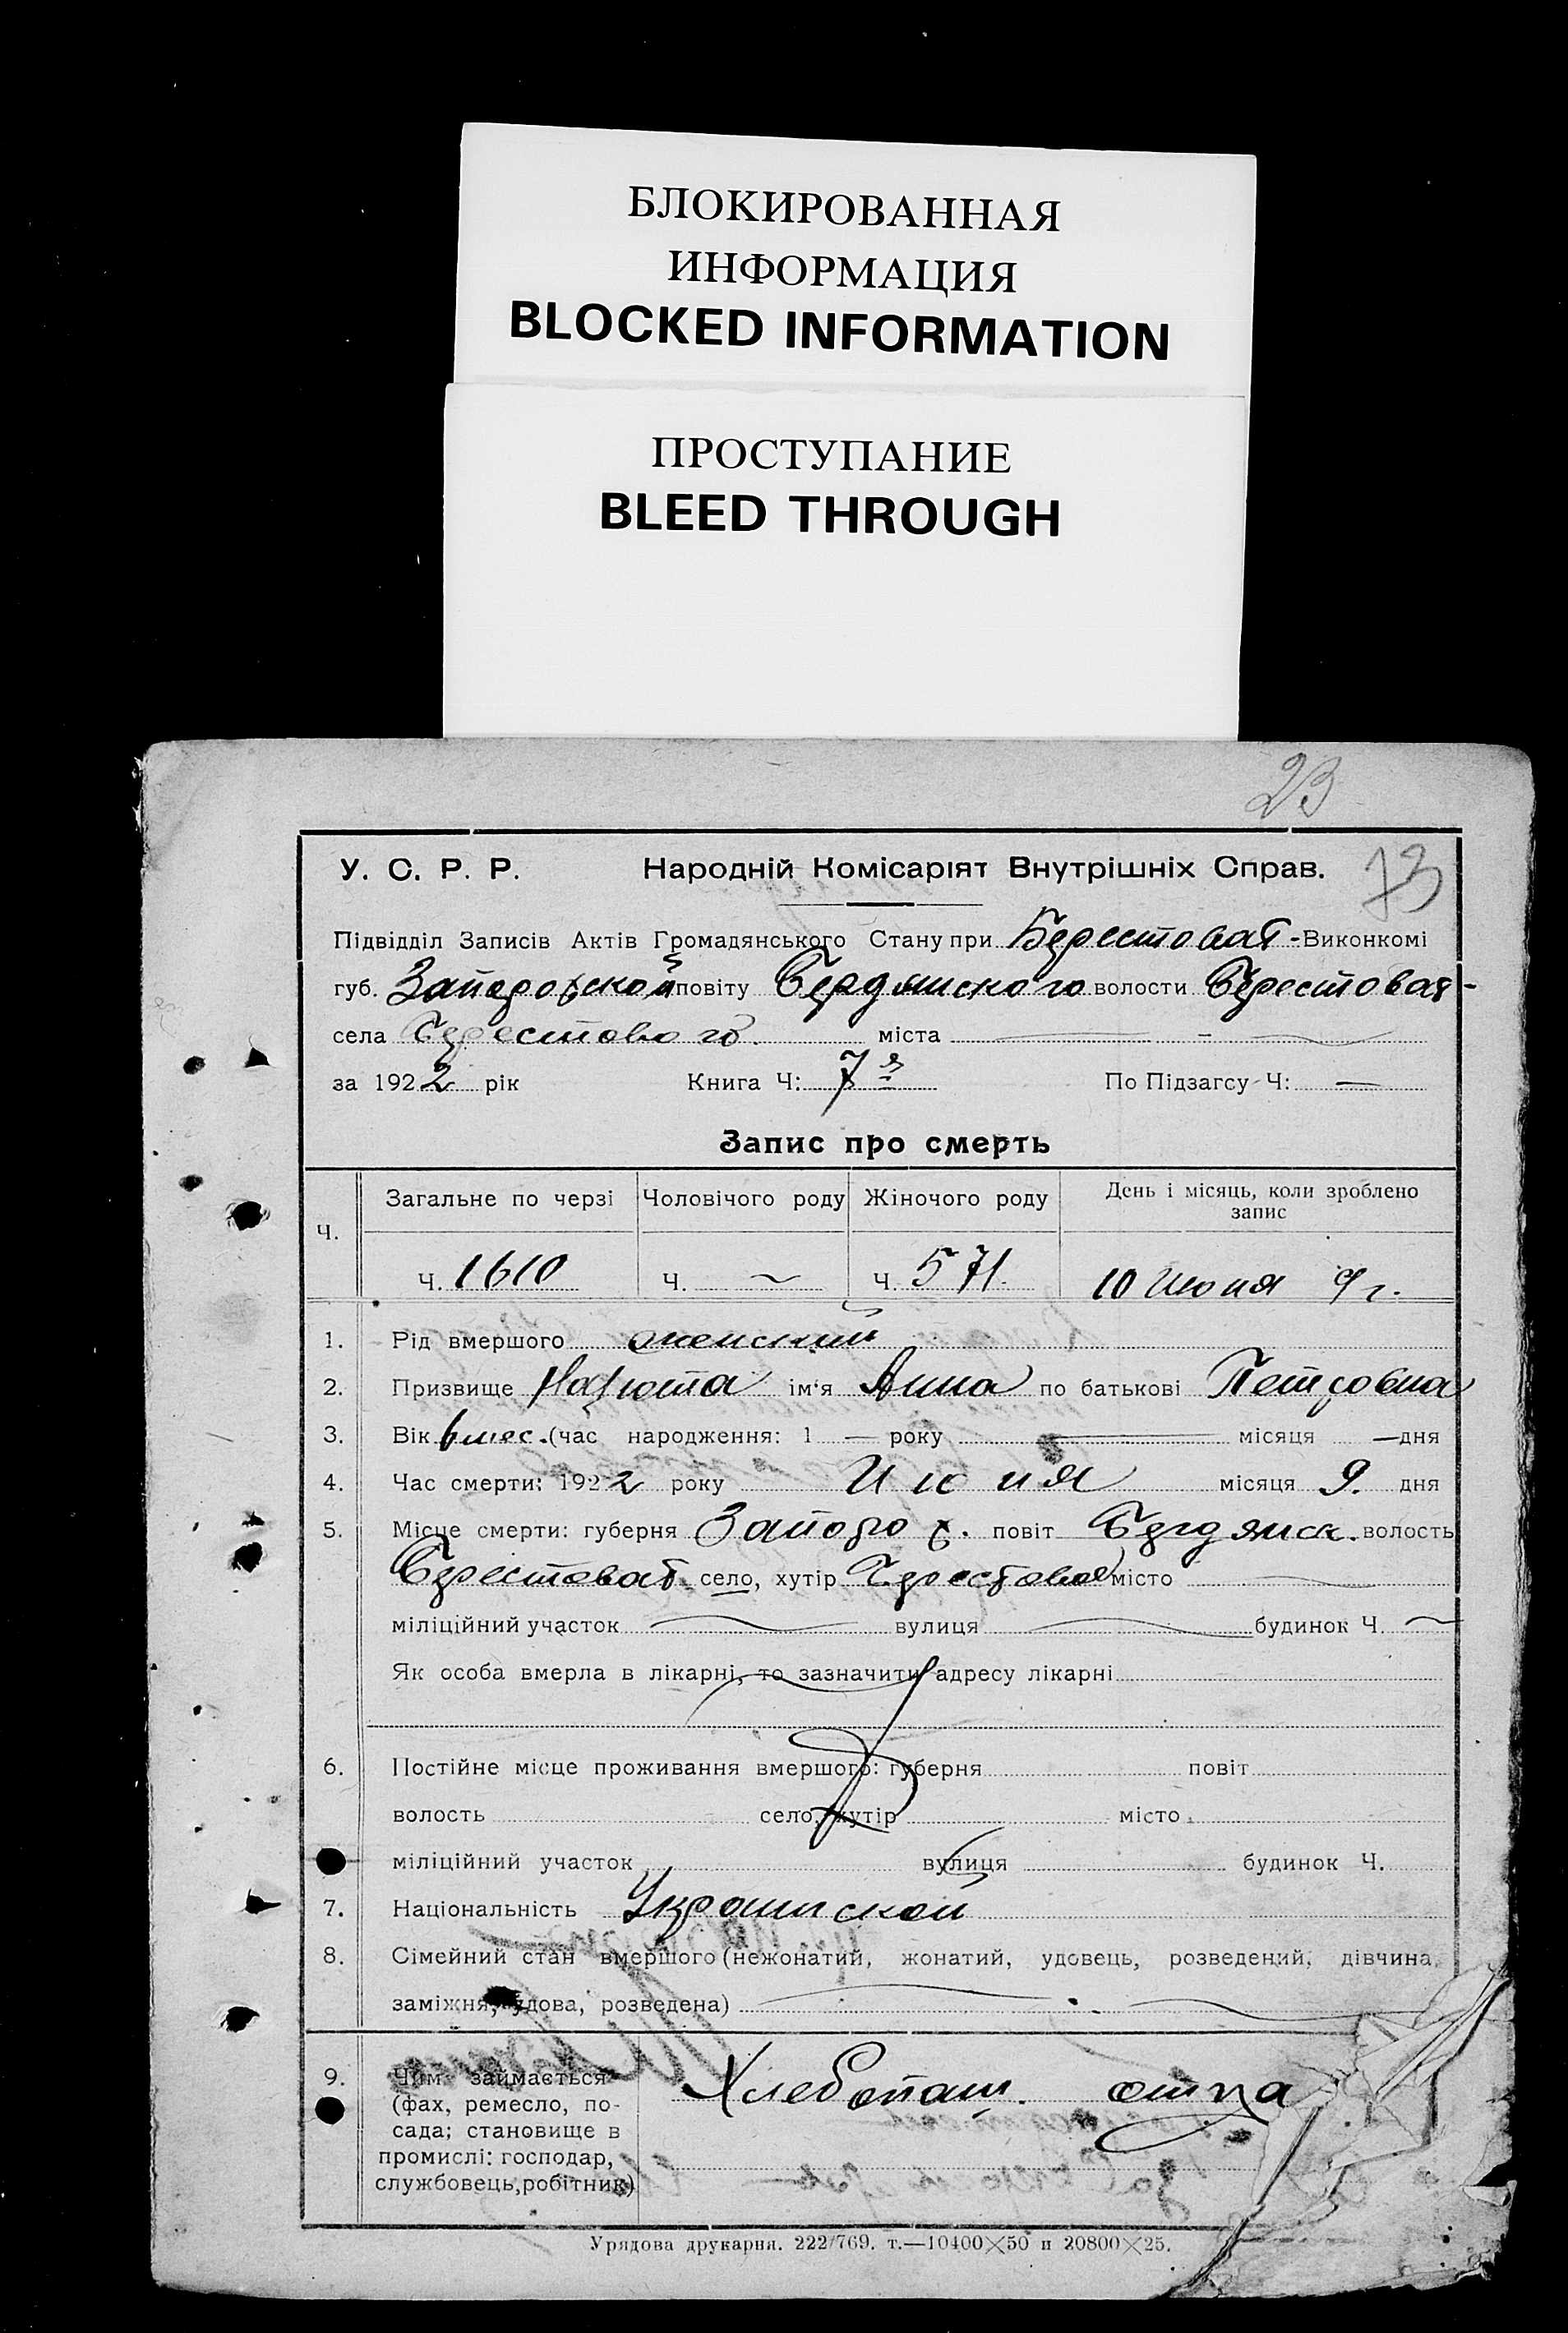 БЛОКИРОВАННАЯ
ИНФОРМАЦИЯ
BLOCKED INFORMATION
ПРОСТУПАНИЕ
BLEED THROUGH
23
73
У. С. Р. Р. Народній Комісаріят Внутрішніх Справ.
Підвідділ Записів Актів Громадянського Стану при Берестоват-Виконкомі
губ. Запорожской повіту Бердянского волости Берестоват-
села Берестового. міста — - —
за 1922 рік Книга Ч: 7я По Підзагсу Ч: —
Запис про смерть
Загальне по черзі Чоловічого роду Жіночого роду День і місяць, коли зроблено
запис
Ч.
Ч. 1610 Ч. ~ Ч. 571. 10 Июня 9 г.
1. Рід вмершого женский
2. Призвище ім'я Анна по батькові Петровна
3. Вік 6 мес. (час народження: 1 — року — місяця — дня
4. Час смерти: 1922 року Июня місяця 9. дня
5. Місце смерти: губерня Запорож. повіт Бердянск. волость
Берестоват. село, хутір Берестовое місто —
міліційний участок — вулиця — будинок Ч. ~
Як особа вмерла в лікарні, то зазначити адресу лікарні
6. Постійне місце проживання вмершого: губерня повіт
волость село, хутір місто
міліційний участок вулиця будинок Ч.
7. Національність Украинской
8. Сімейний стан вмершого (нежонатий, жонатий, удовець, розведений, дівчина,
заміжня, удова, розведена) —
9. Чим займається Хлебопаш. отца
(фах, ремесло, по-
сада; становище в
промислі: господар,
службовець, робітник)
Урядова друкарня. 222/769. т.—10400×50 и 20800×25.